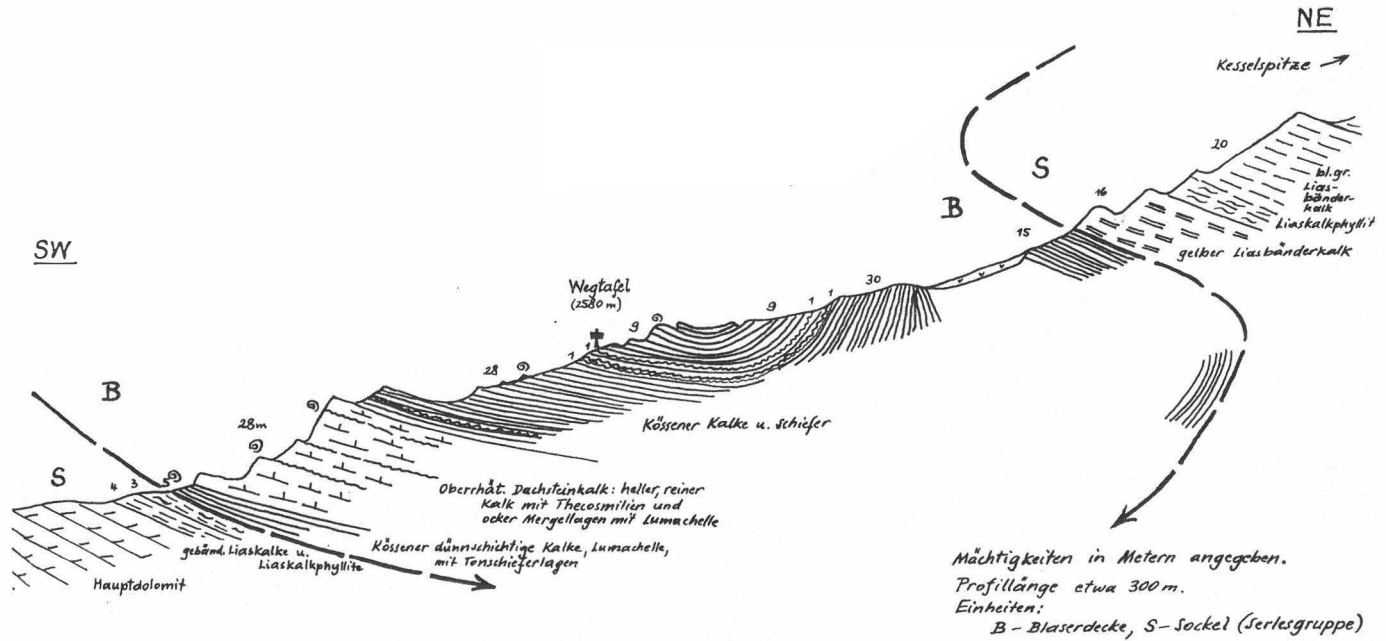 NE
Kesselspitze
20
S
16
bl.gr.
Lias-
bänder-
kalk
Liaskalkphyllit
B
15
gelber Liasbänderkalk
SW
Wegtafel
(2580 m)
30
1
1
9
9
1
1
28
B
28m
Kössener Kalke u. Schiefer
S
4
3
Oberrhät. Dachsteinkalk: heller, reiner
Kalk mit Thecosmilien und
ocker Mergellagen mit Lumachelle
gebänd. Liaskalke u.
Liaskalkphyllite
Kössener dünnschichtige Kalke, Lumachelle,
mit Tonschieferlagen
Hauptdolomit
Mächtigkeiten in Metern angegeben.
Profillänge etwa 300 m.
Einheiten:
B – Blaserdecke, S – Sockel (Serlesgruppe)